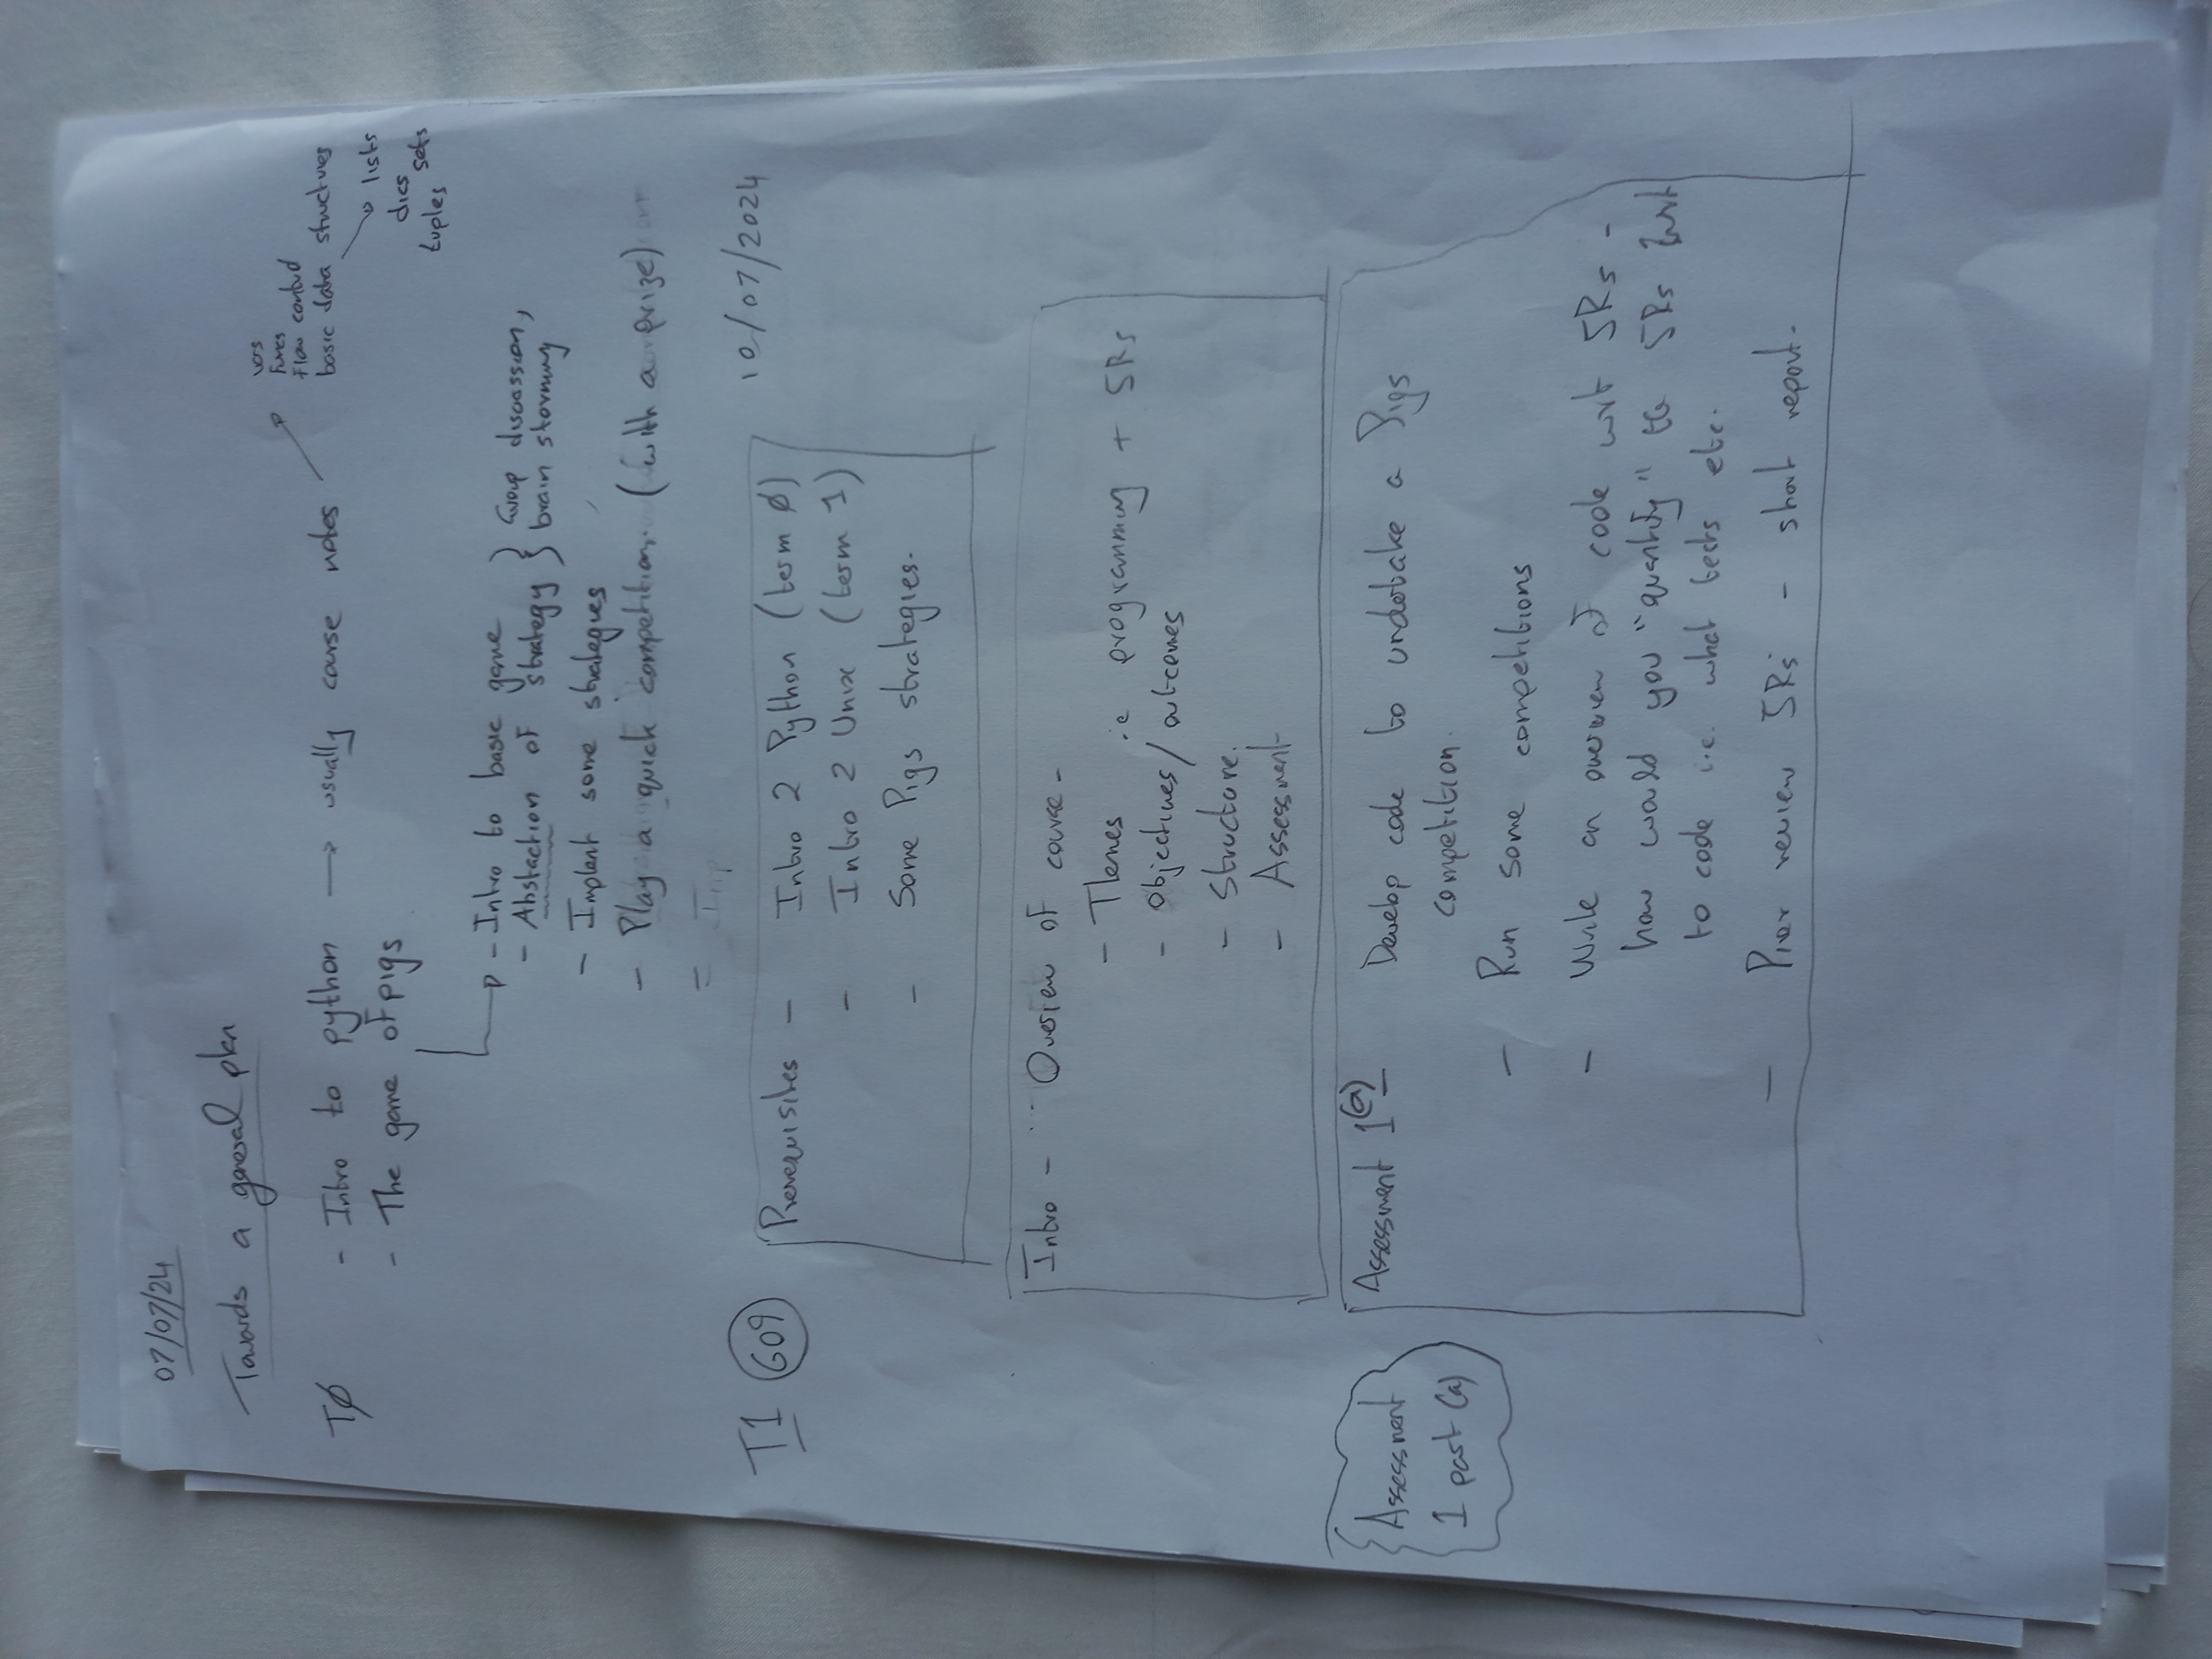 07/07/24
Towards a general plan
vars
Funcs
Flow control
TØ - Intro to python → usually course notes
basic data structures
- The game of pigs
lists
dics
sets
tuples
- Intro to basic game
- Abstaction of strategy
Group discussion,
brain storming
- Implent some strategies
- Play a quick competition. (with a prize)
= Imp
T1 609
10/07/2024
Prerequisites - Intro 2 Python (term Ø)
- Intro 2 Unix (term 1)
- Some Pigs strategies.
Intro - Overview of course -
- Themes i.e programming + 5Rs
- Objectives/outcomes
- Structure.
- Assessment
Assessment
1 part (a)
Assessment 1(a) Develop code to undertake a Pigs
competition.
- Run some competitions
- Write an overview of code wrt 5Rs -
how would you "quantify" the 5Rs wrt
to code i.e. what tests etc.
- Pier review 5Rs - short report.